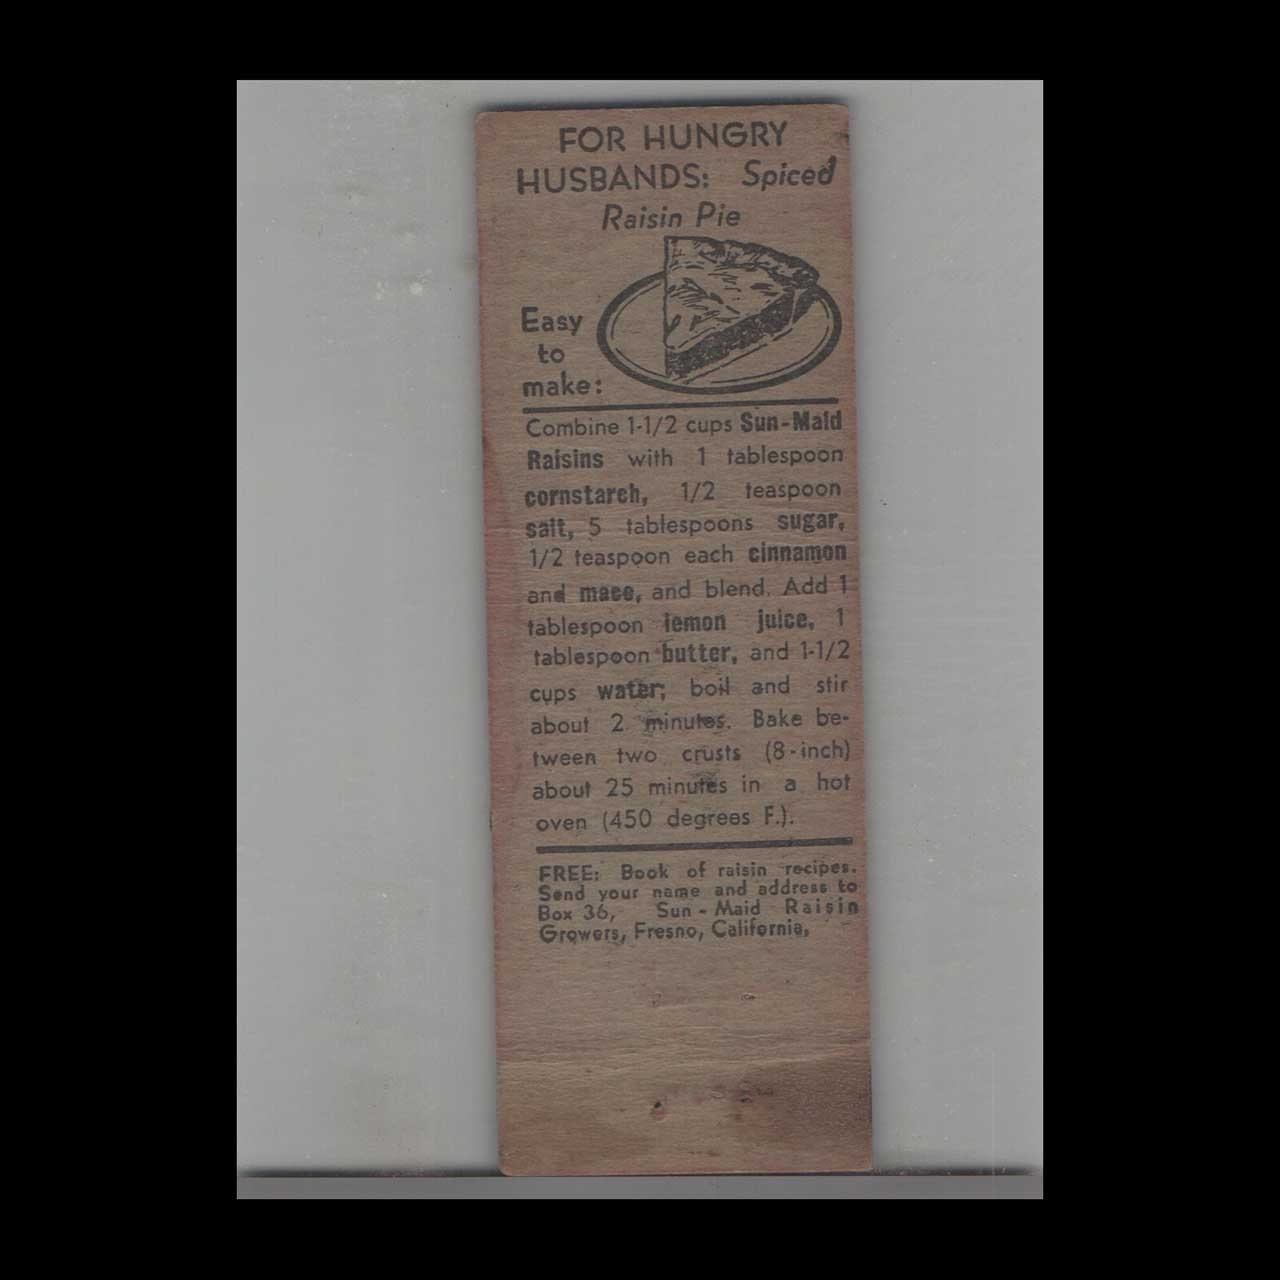 FOR HUNGRY
HUSBANDS: Spiced
Raisin Pie
Easy
to
make:
Combine 1-1/2 cups Sun-Maid
Raisins with 1 tablespoon
cornstarch, 1/2 teaspoon
salt, 5 tablespoons sugar,
1/2 teaspoon each cinnamon
and mace, and blend. Add 1
tablespoon lemon juice, 1
tablespoon butter, and 1-1/2
cups water; boil and stir
about 2 minutes. Bake be-
tween two crusts (8-inch)
about 25 minutes in a hot
oven (450 degrees F.).
FREE: Book of raisin recipes.
Send your name and address to
Box 36, Sun-Maid Raisin
Growers, Fresno, California.